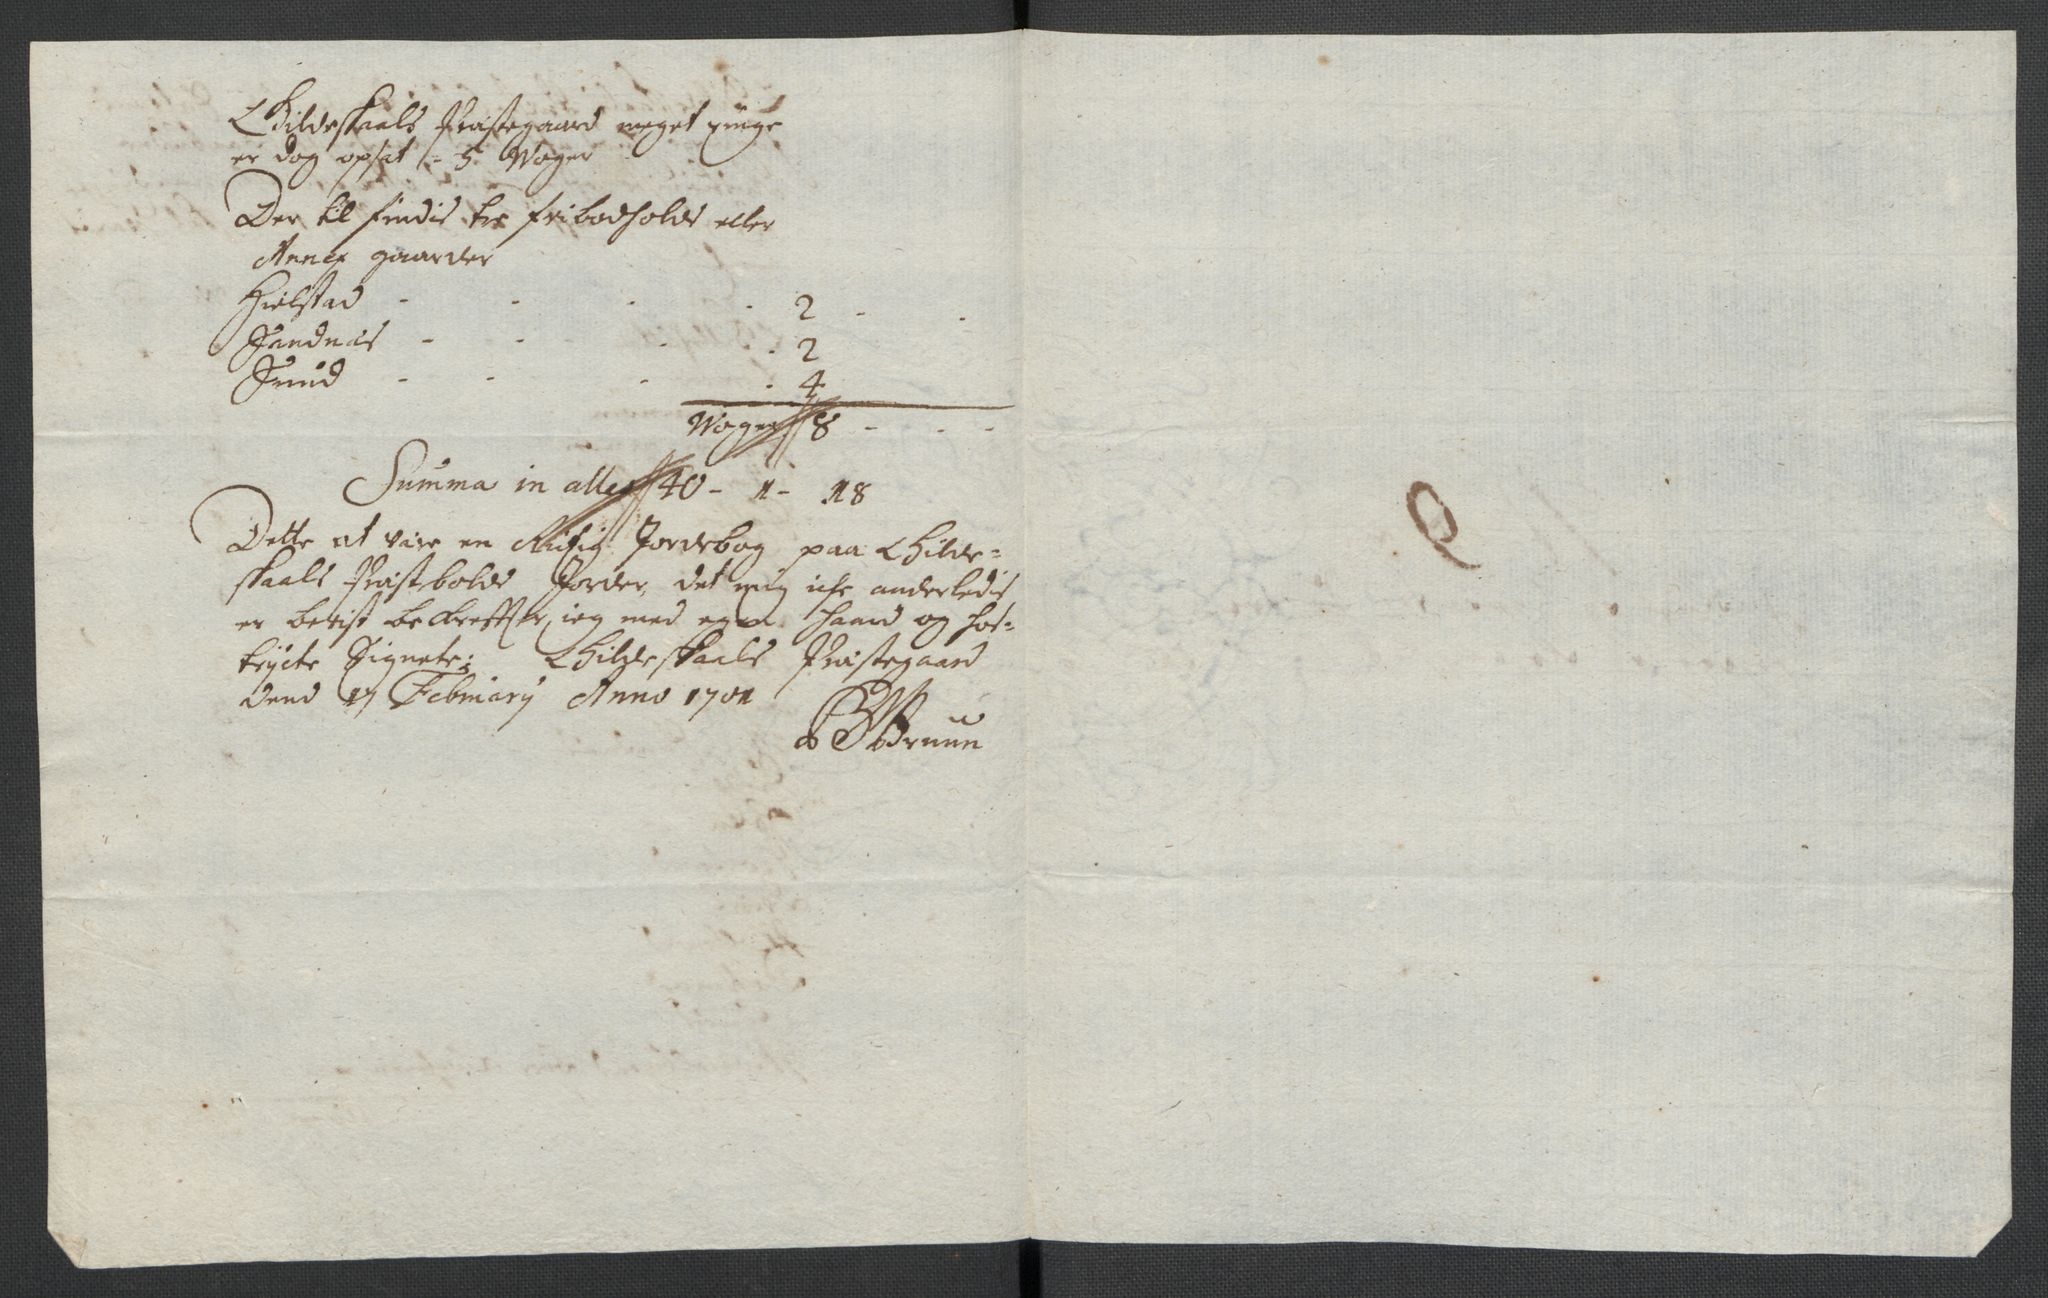 Gildeskaals Præstegaard meget ringe
er dog opsat = 5 Woger
Der til findis tre fribodholds eller
Annex gaarder
Hielstad - - - - 2 - -
Sandnæs - - - - 2
Sund - - - - 4
Woger 8 - - -
Summa in alles 40 - 1 - 18
Dette at være en Rigtig Jordebog paa Gilde=
skaals Præstebolds Jorder, det mig iche anderledis
er bevist bekreffter ieg med egen haand og hos=
tryckte Signete; Gildeskaals Præstegaard
Dend 17 February Anno 1701
Bruun
9